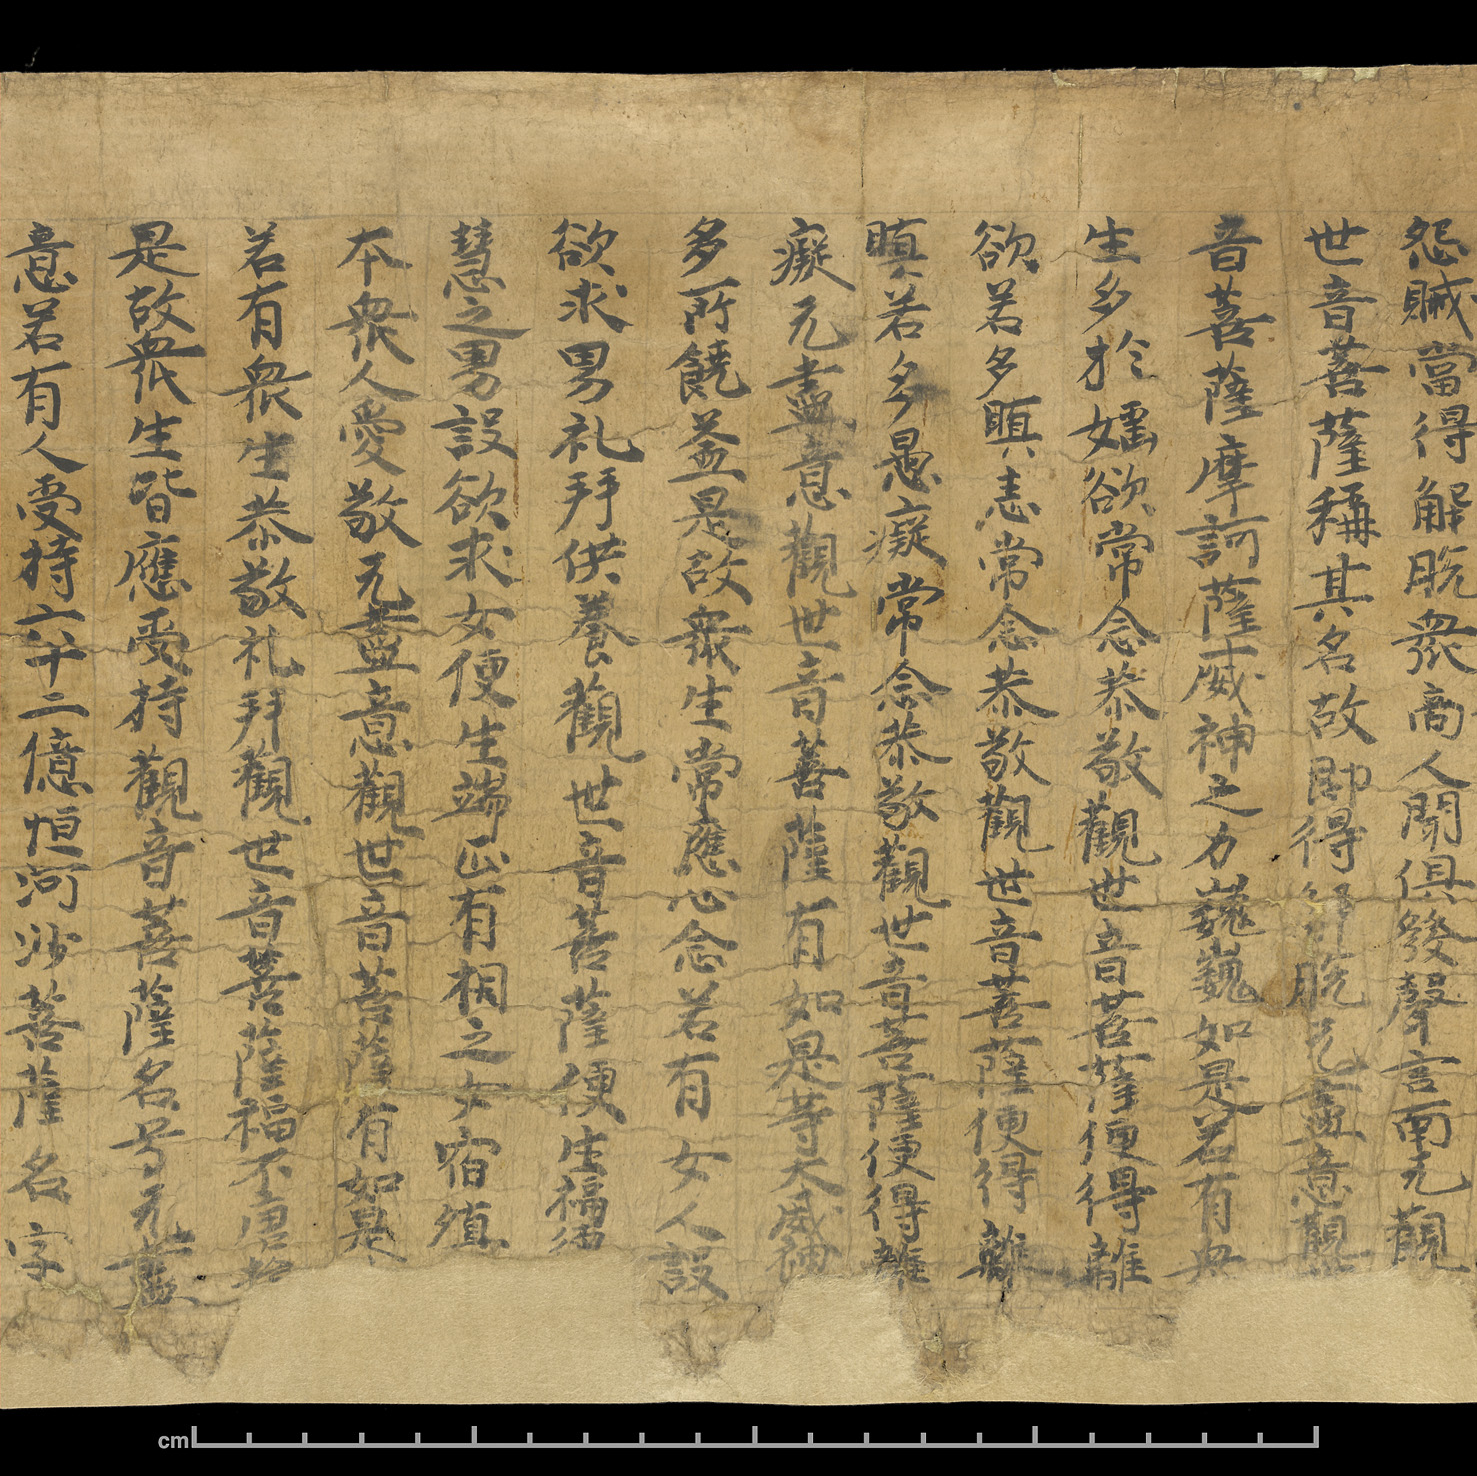 怨賊當得解脱衆商人聞俱發聲言南无觀
世音菩薩稱其名故即得解脱无盡意觀
音菩薩摩訶薩威神之力巍巍如是若有衆
生多於婬欲常念恭敬觀世音菩薩便得離
欲若多瞋恚常念恭敬觀世音菩薩便得離
瞋若多愚癡常念恭敬觀世音菩薩便得離
癡无盡意觀世音菩薩有如是等大威神
多所饒益是故衆生常應心念若有女人設
欲求男礼拜供養觀世音菩薩便生福德
慧之男設欲求女便生端正有相之女宿殖
本衆人愛敬无盡意觀世音菩薩有如是
若有衆生恭敬礼拜觀世音菩薩福不唐捐
是故衆生皆應受持觀音菩薩名号无盡
意若有人受持六十二億恒河沙菩薩名字